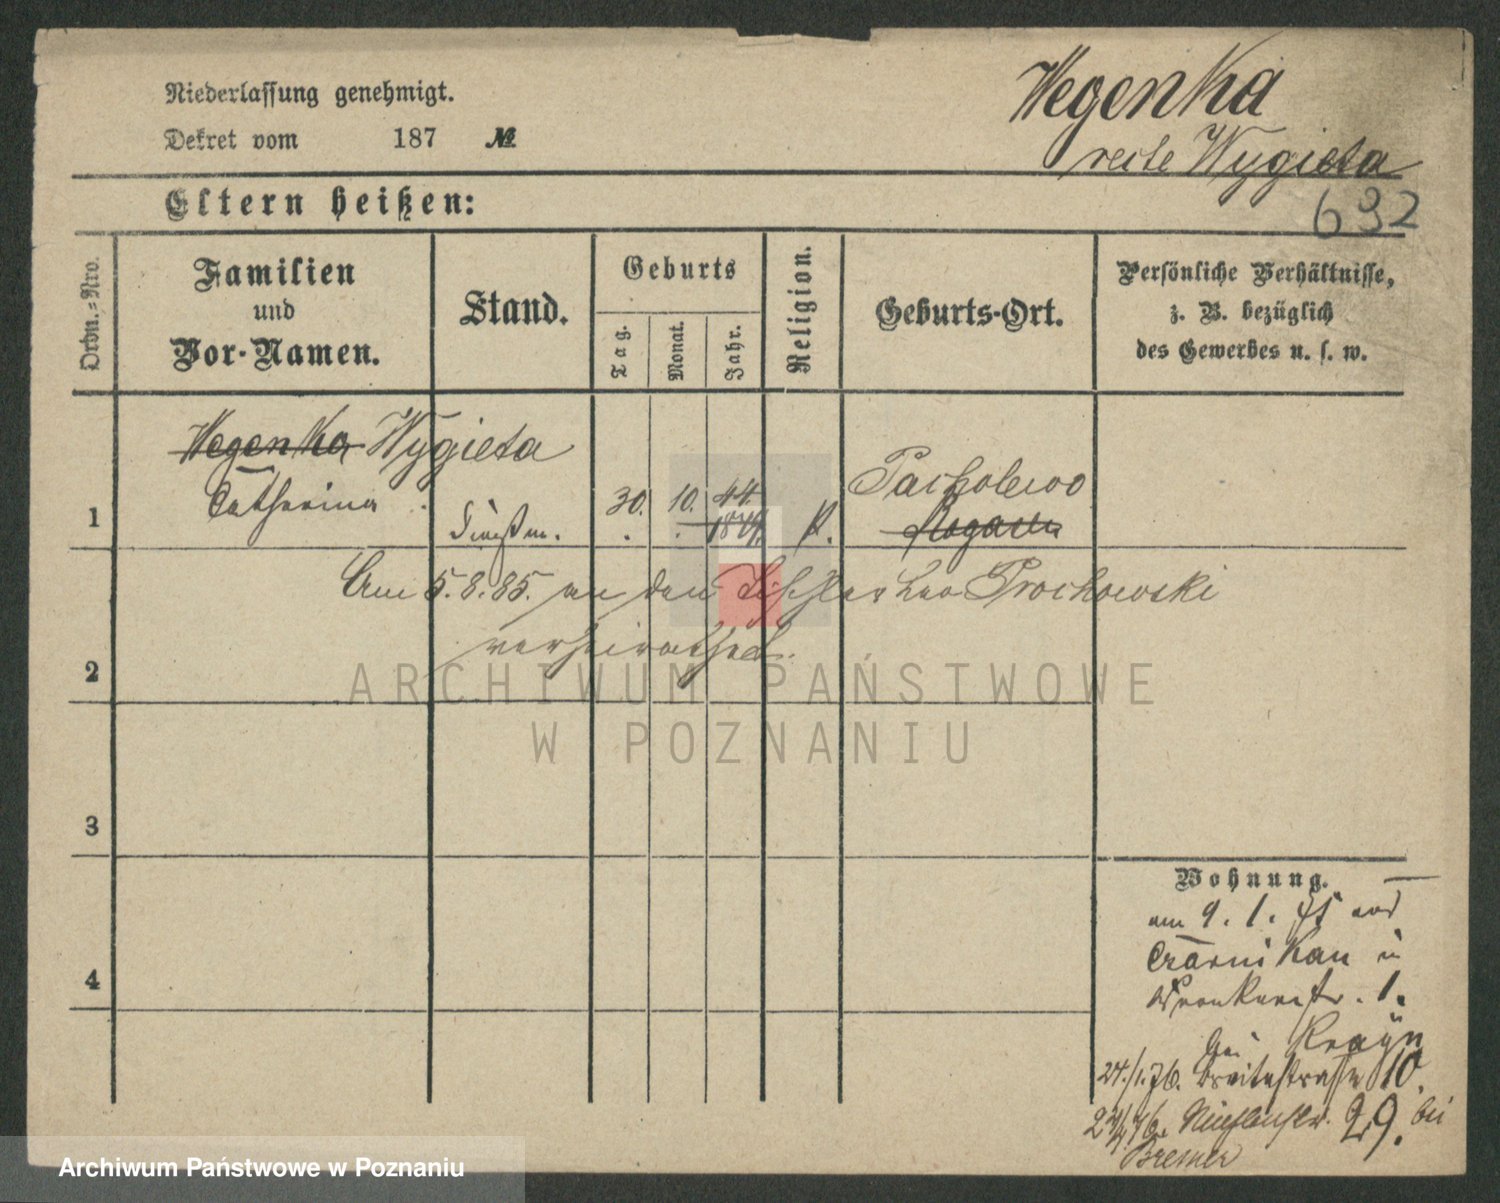 Niederlassung genehmigt.
Dekret vom 187 №
Wegenka
recte Wygieta
632
Eltern heißen:
Ordn.-Nro.
Familien
und
Vor-Namen.
Stand.
Geburts
Tag.
Monat.
Jahr.
Religion.
Geburts-Ort.
Persönliche Verhältnisse,
z. B. bezüglich
des Gewerbes u. s. w.
1
Wegenka Wygieta
Catharina
30. 10. 44.
Pacholewo
Am 5.8.85. an den Tischler Leo Prochowski
verheirathet.
2
3
4
Wohnung.
am 9. 1. 75 aus
Czarnikau in
Wronkerstr. 1.
bei Krayn
24./1.76. Breitestrasse 10.
29. bei
Bremer
ARCHIWUM PAŃSTWOWE
W POZNANIU
Archiwum Państwowe w Poznaniu